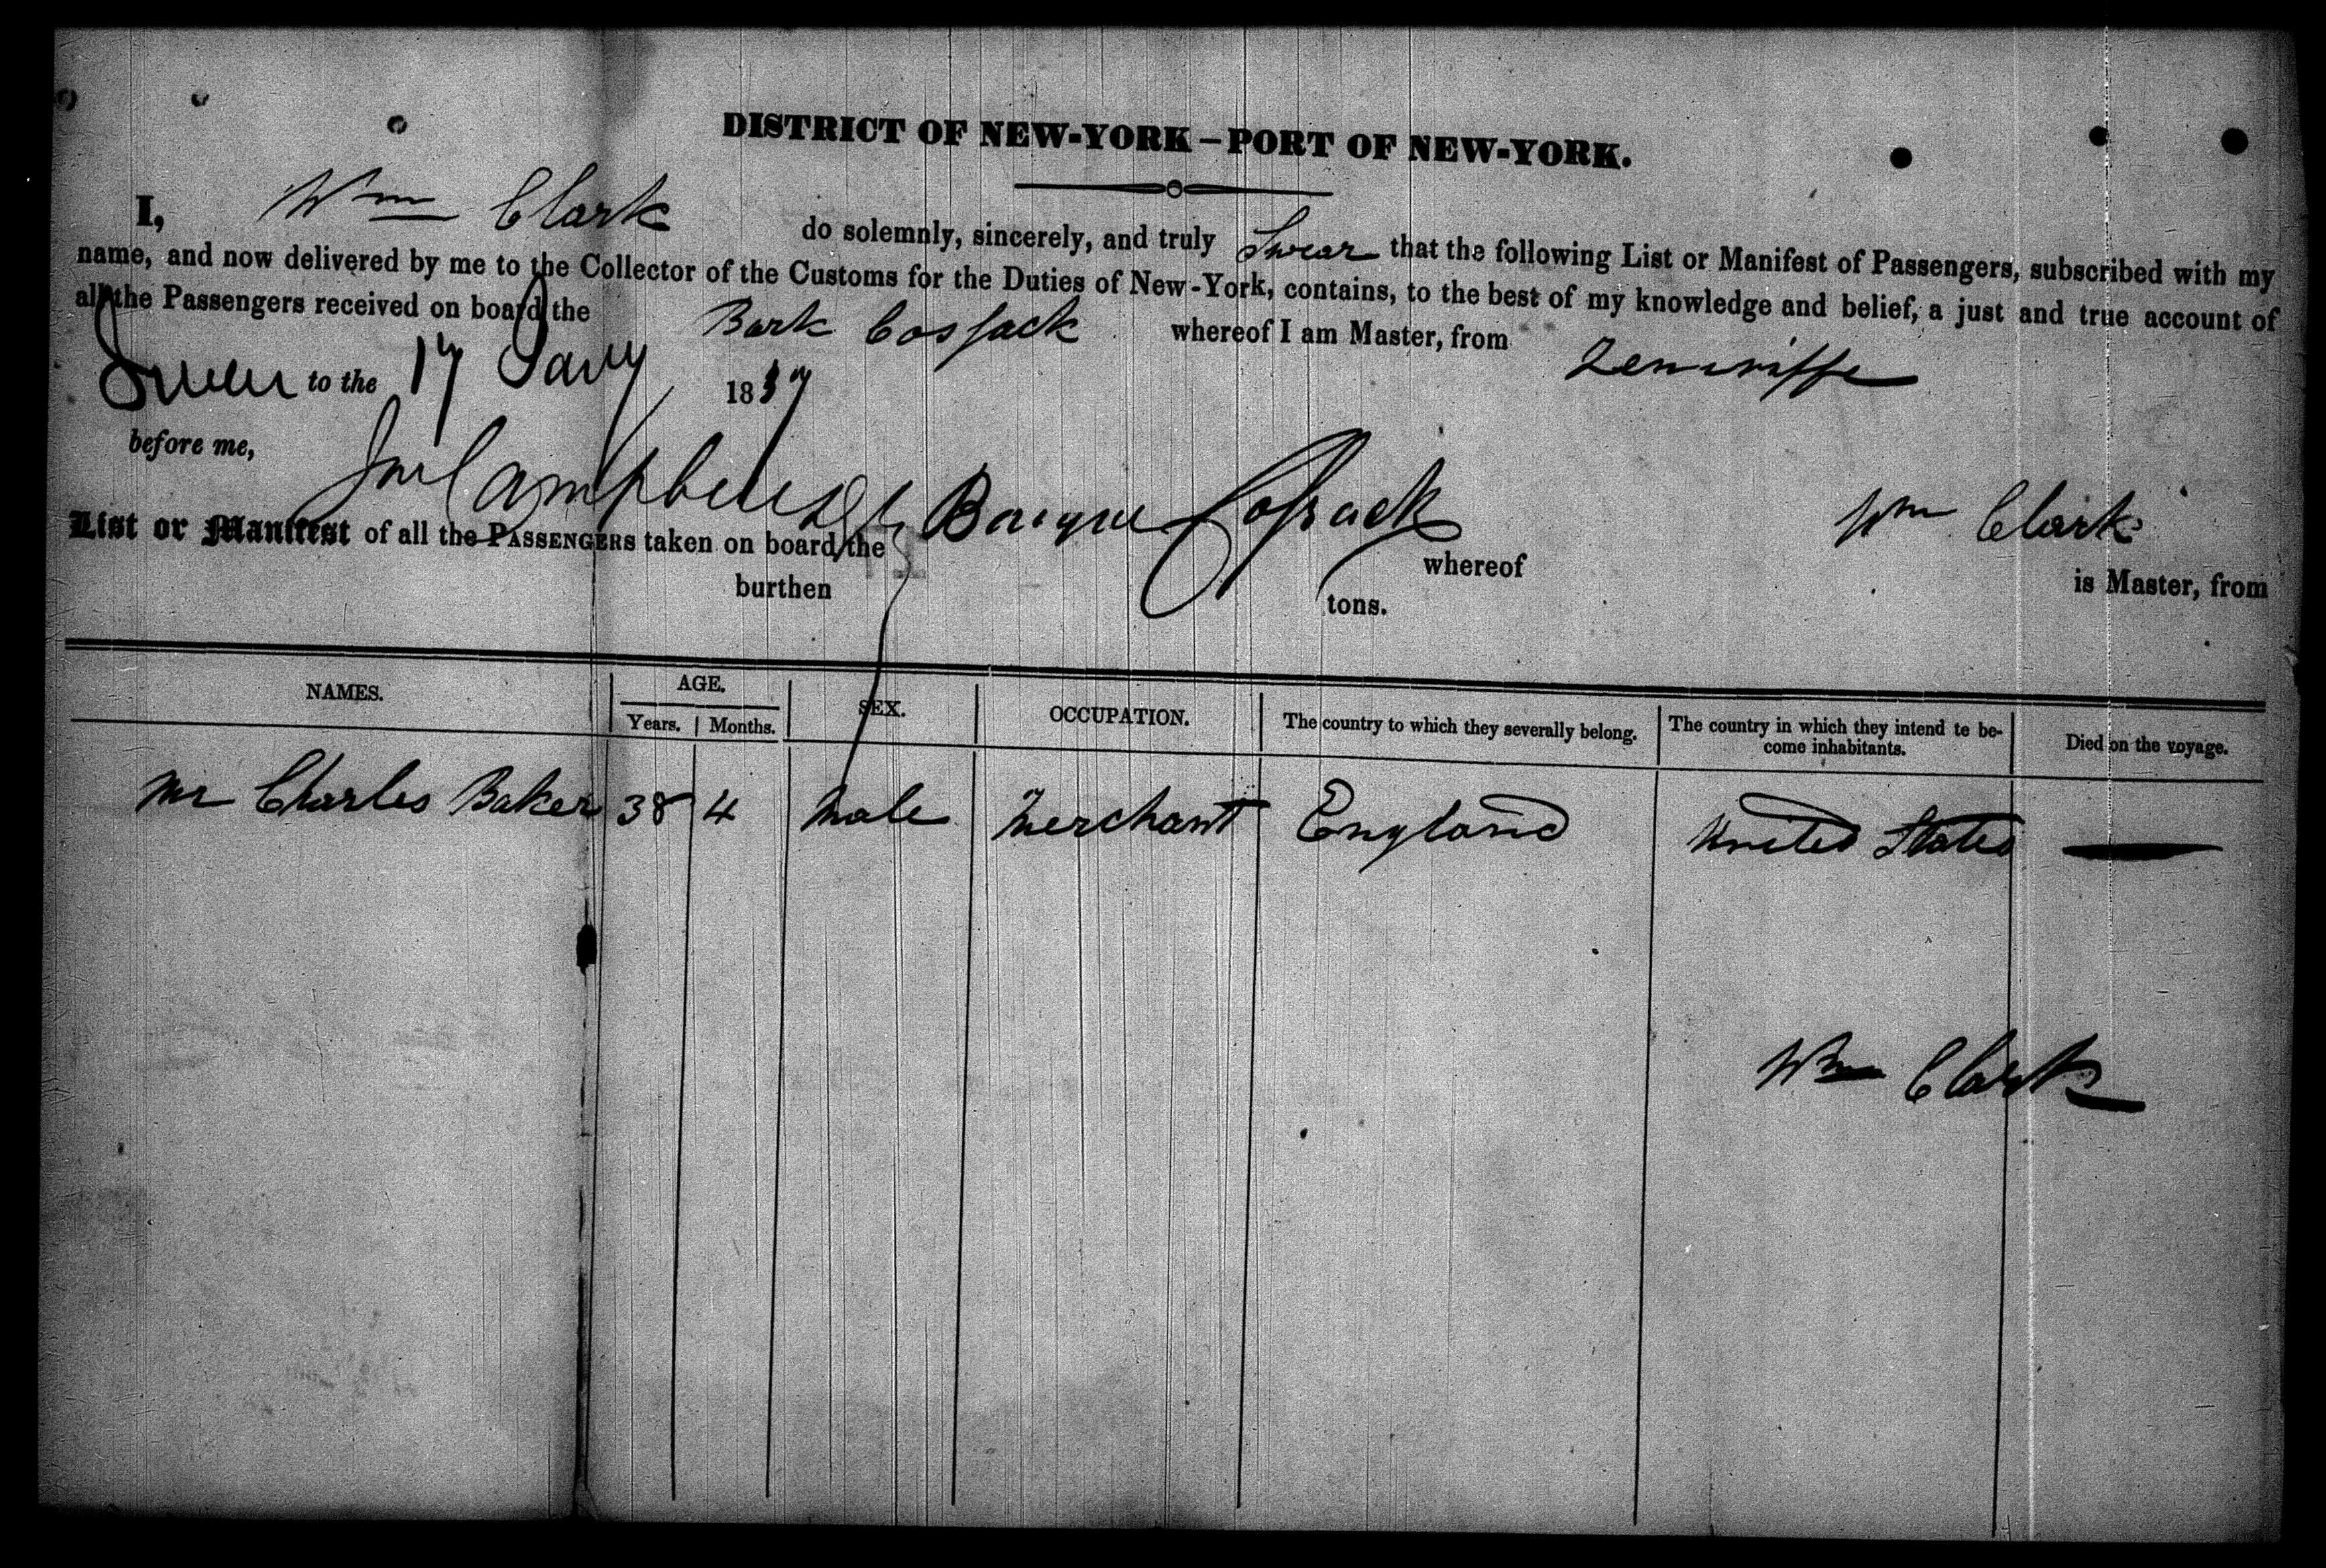 DISTRICT OF NEW-YORK – PORT OF NEW-YORK.
I, Wm Clark do solemnly, sincerely, and truly Swear that the following List or Manifest of Passengers, subscribed with my
name, and now delivered by me to the Collector of the Customs for the Duties of New-York, contains, to the best of my knowledge and belief, a just and true account of
all the Passengers received on board the Bark Cossack whereof I am Master, from Teneriffe
to the 17 Jany 1857
before me, Campbell Wm Clark
List or Manifest of all the PASSENGERS taken on board the Barque Cossack whereof is Master, from
burthen tons.
NAMES. AGE. SEX. OCCUPATION. The country to which they severally belong. The country in which they intend te be-come inhabitants. Died on the voyage.
Years. Months.
Mr Charles Baker 38 4 Male Merchant England United States —
Wm Clark